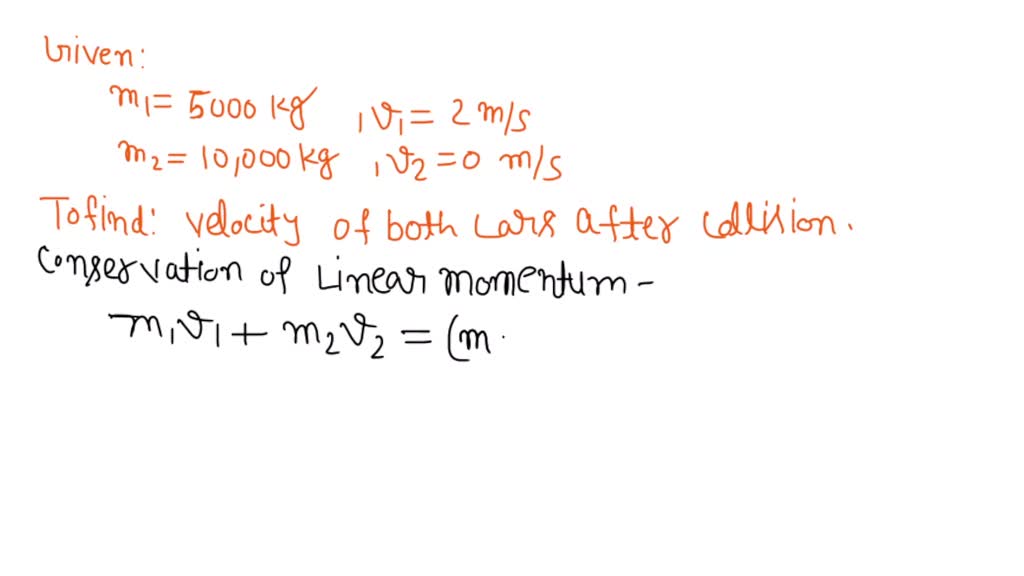 Given:
m₁ = 5000 kg , v₁ = 2 m/s
m₂ = 10,000 kg , v₂ = 0 m/s
To find: velocity of both cars after collision.
Conservation of Linear momentum -
m₁v₁ + m₂v₂ = (m